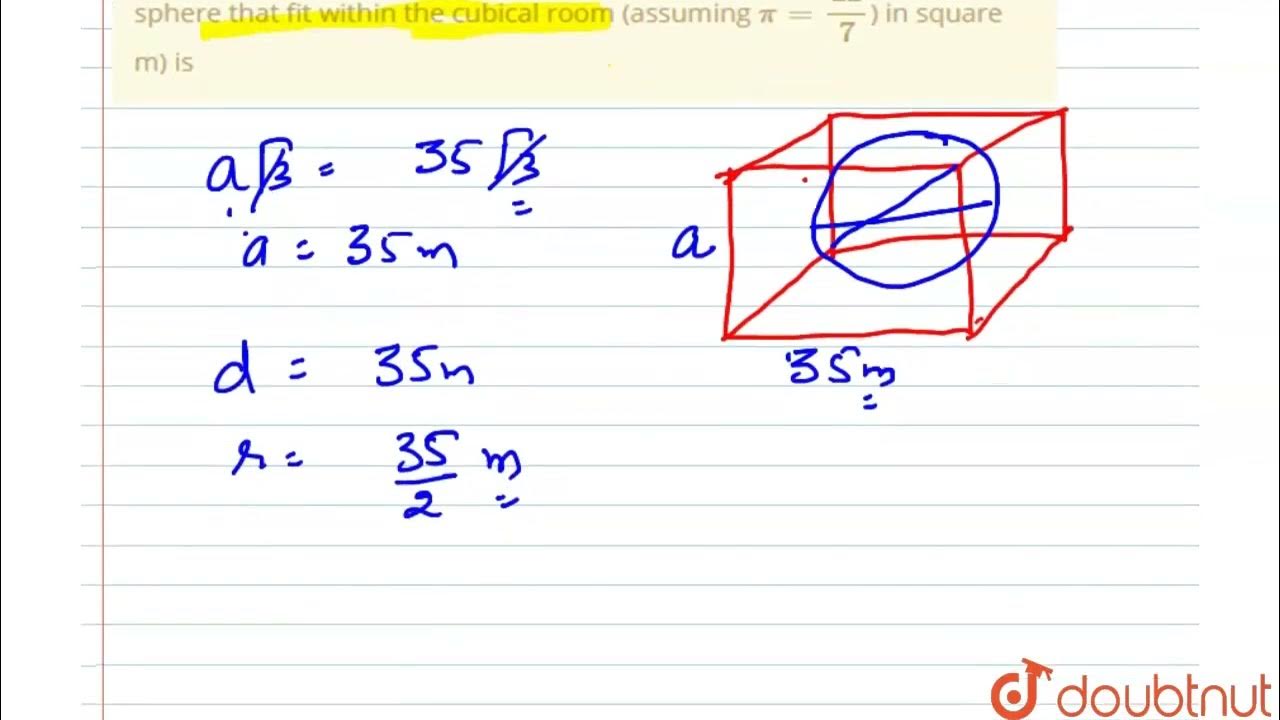 sphere that fit within the cubical room (assuming π = /7) in square
m) is
a√3 = 35√3
a = 35m
d = 35m
r = 35/2 m
a
35m
doubtnut